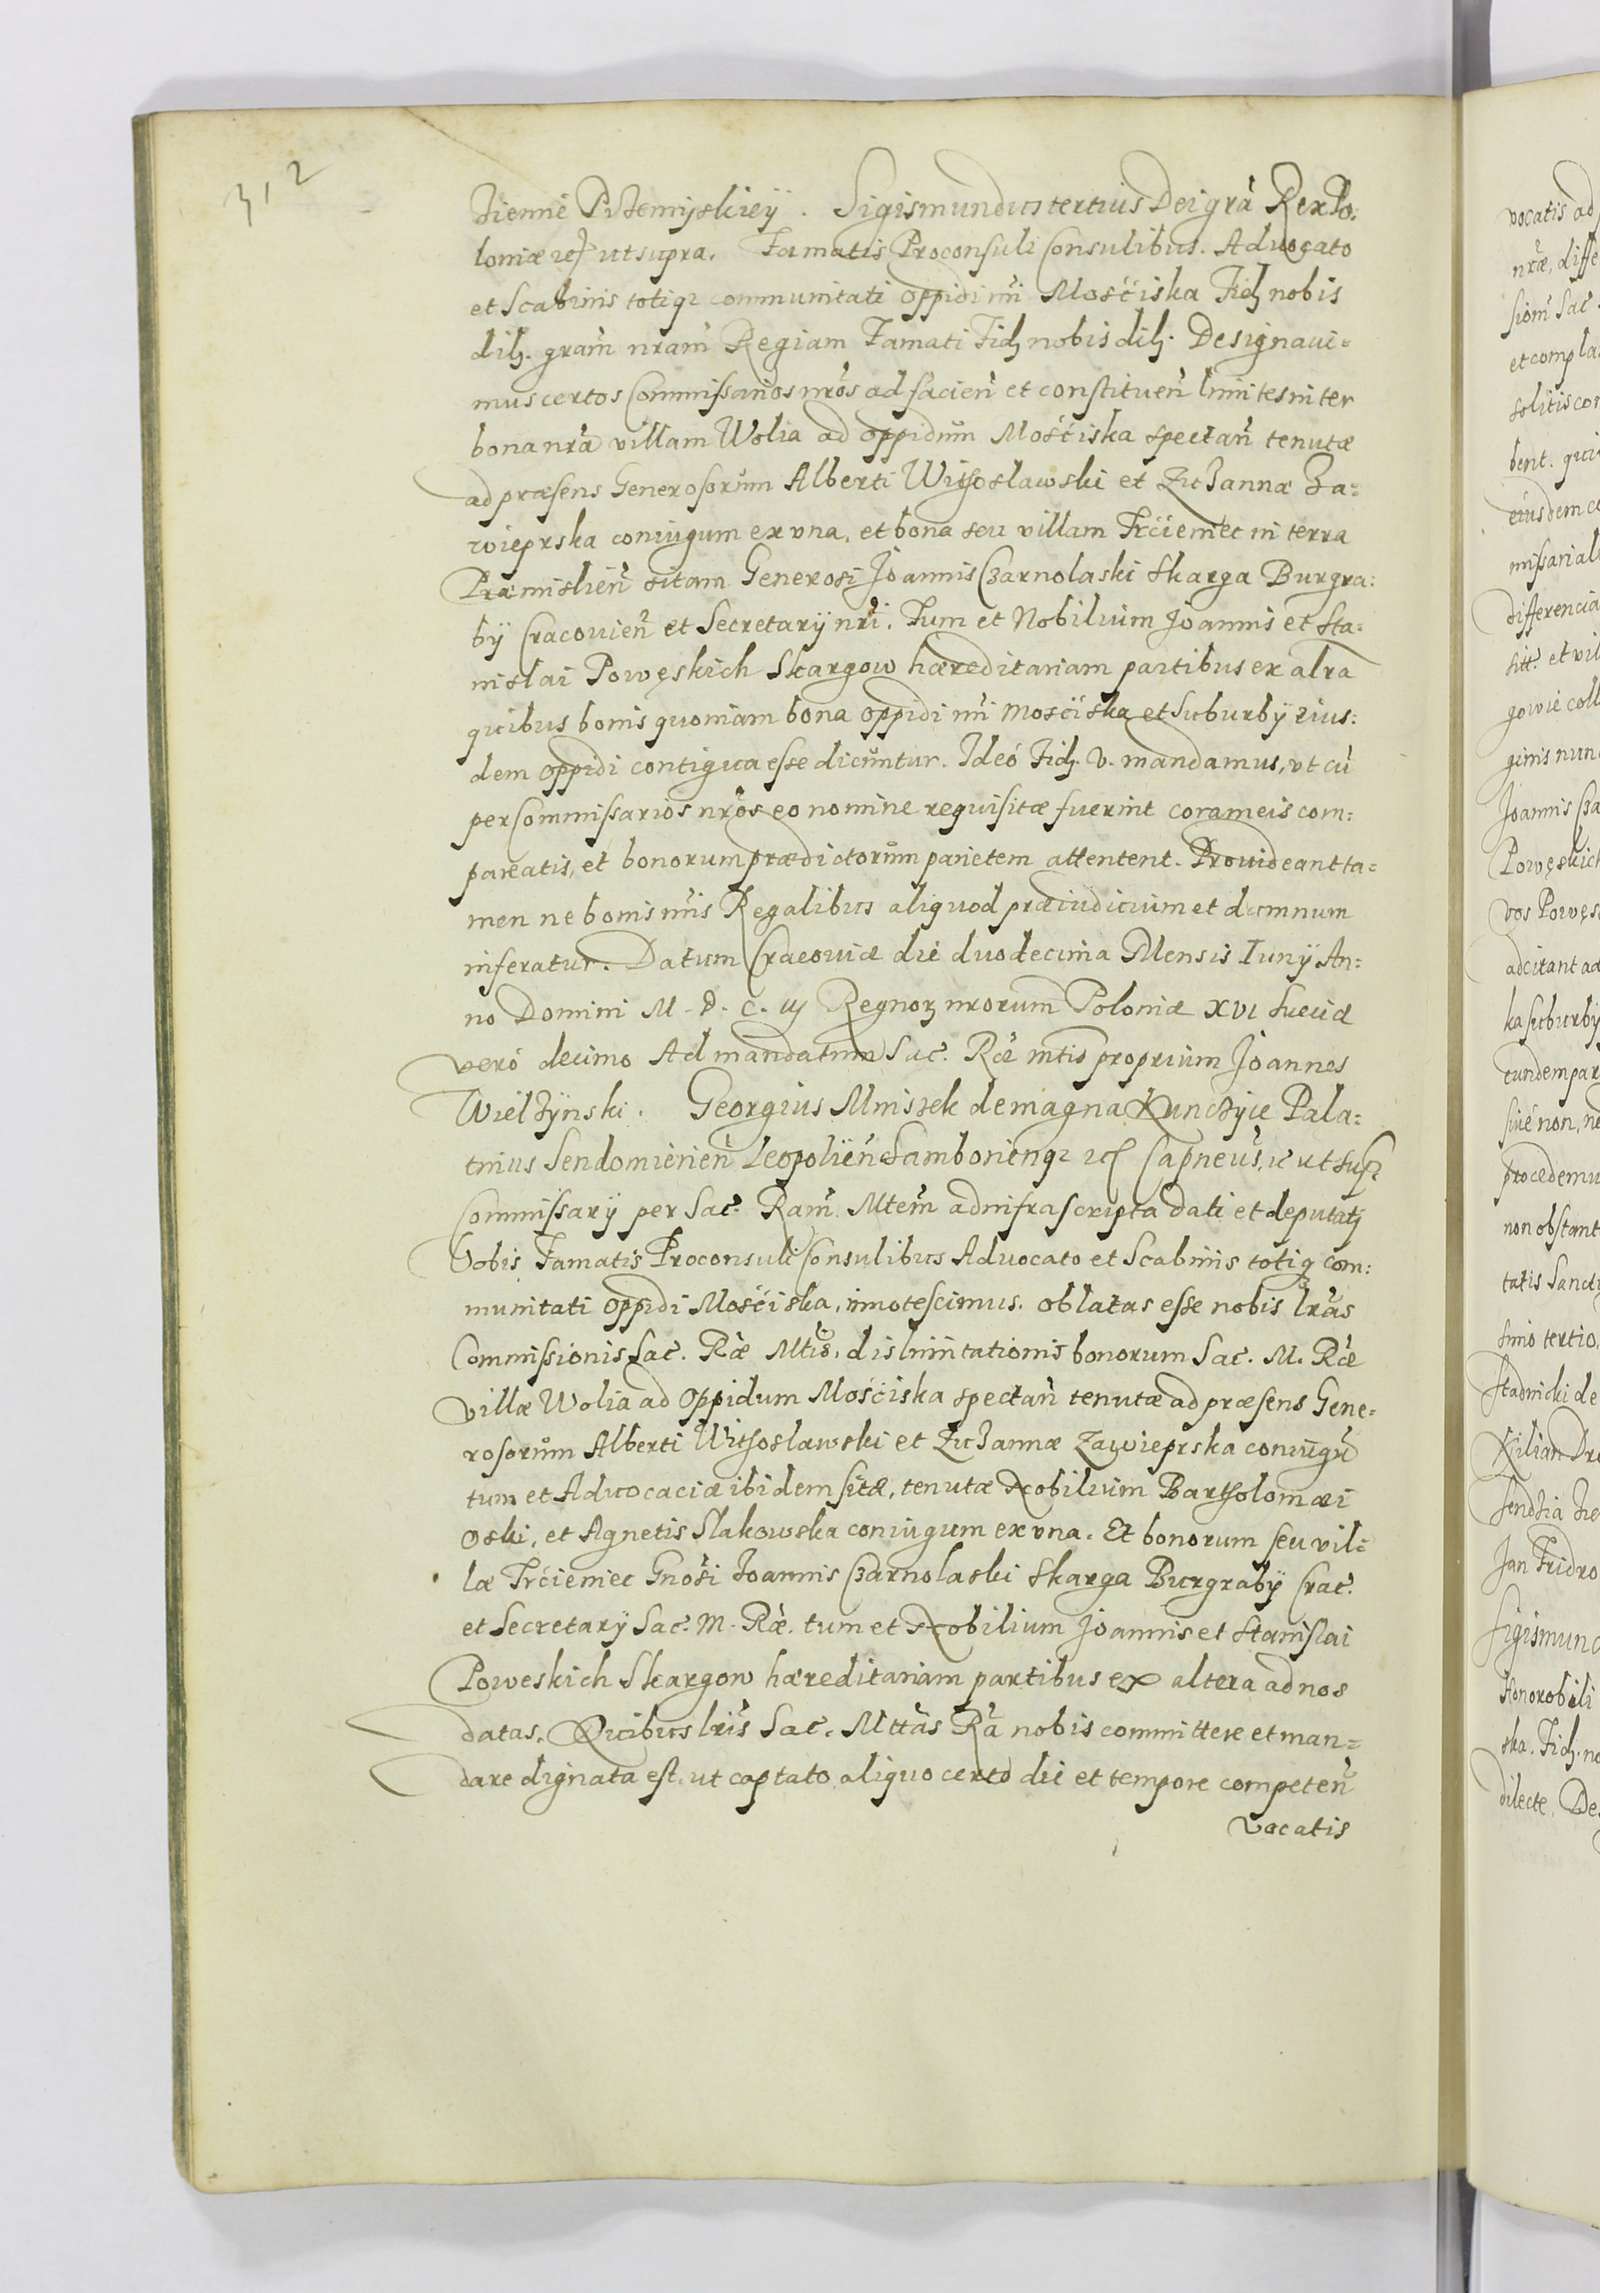 312
Ziemie Przemyskiey. Sigismundus tertius Dei grã Rex Po,
loniæ etc ut supra. Famatis Proconsuli Consulibus. Aduocato
et Scabinis totiq3 communitati oppidi nri Mośćiska Fid nobis
dil. gram nram Regiam Famati Fid nobis dil. Designaui=
mus certos Commissarios nros ad facien et constituen limites inter
bona nra villam Wolia ad oppidum Mośćiska spectan tenutæ
ad præsens Generosorum Alberti Withoslawski et Zuzannæ Za=
wieprska coniugum ex vna, et bona seu villam Trćieniec in terra
Præmislien sitam Generosi Joannis Czarnolaski Skarga Burgra:
bÿ Cracouien et Secretarÿ nri. Tum et Nobilium Joannis et Sta:
nislai Powęskich Skargow hæreditariam partibus ex alra
quibus bonis quoniam bona oppidi nri Mośćiska et Suburbÿ eius:
dem oppidi contigua esse dicuntur. Ideó Fid. V. mandamus, vt cũ
per Commissarios nros eo nomine requisitæ fuerint coram eis com:
pareatis, et bonorum prædictorum parietem attentent. Prouideant ta=
men ne bonis nris Regalibus aliquod præiudicium et damnum
inferatur. Datum Cracouiæ die duodecima Mensis Iunÿ An:
no Domini M. D. C. iij Regnor nrorum Poloniæ XVI Sueciæ
veró decimo Ad mandatum Sac. Ræ mtis proprium Joannes
Wielzÿnski. Georgius Mniszek de magna Kunczÿce Pala:
tinus Sendomirien Leopolien Samborienq3 etc Capneus, ic ut sup
Commissarÿ per Sac. Ram Mtem ad infrascripta dati et deputati
Vobis Famatis Proconsuli Consulibus Aduocato et Scabinis totiq com:
munitati oppidi Mośćiska, innotescimus. oblatas esse nobis lras
Commissionis Sac. Ræ Mtis. dislimitationis bonorum Sac. M. Ræ
villæ Wolia ad Oppidum Mośćiska spectan tenutæ ad præsens Gene=
rosorum Alberti Withoslawski et Zuzannæ Zawieprska coniugũ
tum et Aduocaciæ ibidem sitæ, tenutæ Nobilium Bartholomæi
Oski, et Agnetis Slakowska coniugum ex vna. Et bonorum seu vil=
læ Trćieniec Gnosi Joannis Czarnolaski Skarga Burgrabÿ Crac.
et Secretarÿ Sac. M. Ræ. tum et Nobilium Joannis et Stanislai
Poweskich Skargow hæreditariam partibus ex altera ad nos
datas. Quibus lris Sac. Mttas Ra nobis committere et man=
dare dignata est, ut captato aliquo certo die et tempore competen
vocatis
vocatis ad
nræ, diffe
siom Sac
et compla
solitis con
bent. qui
eiusdem co
missarial
differencia
sitt. et vil
gowie coll
ginis nunc
Joannis Cza
Powęskich
vos Powęs
adcitant ad
ka suburbÿ
eundem par
siué non, ne
procedemu
non obstant
tatis Sancti
simo tertio.
Stadnicki de
Kilian Dro
Sendzia Zie
Jan Fridro
Sigismund
Honorobili
ska. Fid. no
dilecte. De